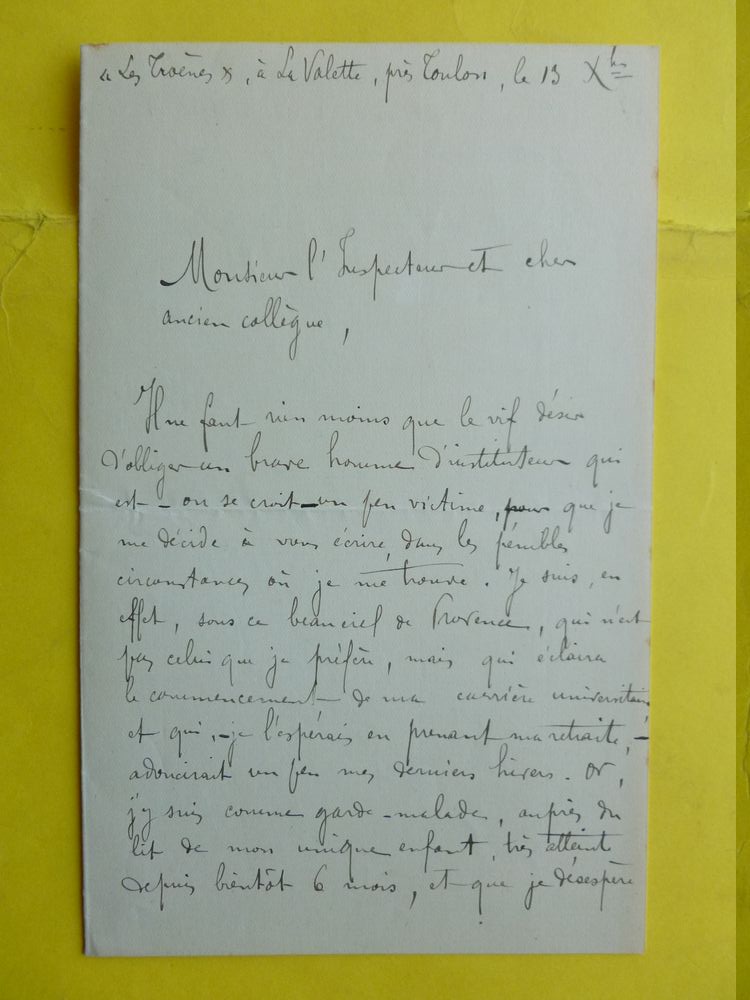 « Les Troènes », à La Valette, près Toulon, le 13 Xbre
Monsieur l'Inspecteur et cher
ancien collègue,
Il ne faut rien moins que le vif désir
d'obliger un brave homme d'instituteur qui
est – ou se croit – un peu victime, pour que je
me décide à vous écrire, dans les pénibles
circonstances où je me trouve. Je suis, en
effet, sous ce beau ciel de Provence, qui n'est
pas celui que je préfère, mais qui éclaira
le commencement de ma carrière universitaire
et qui, – je l'espérais en prenant ma retraite, –
adoucirait un peu mes derniers hivers. Or,
j'y suis comme garde-malade, auprès du
lit de mon unique enfant, très atteint
depuis bientôt 6 mois, et que je désespère